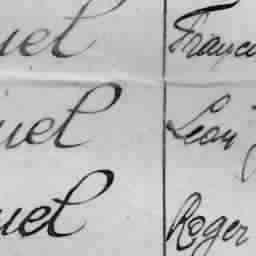 uel Franço
uel Léon
uel Roger